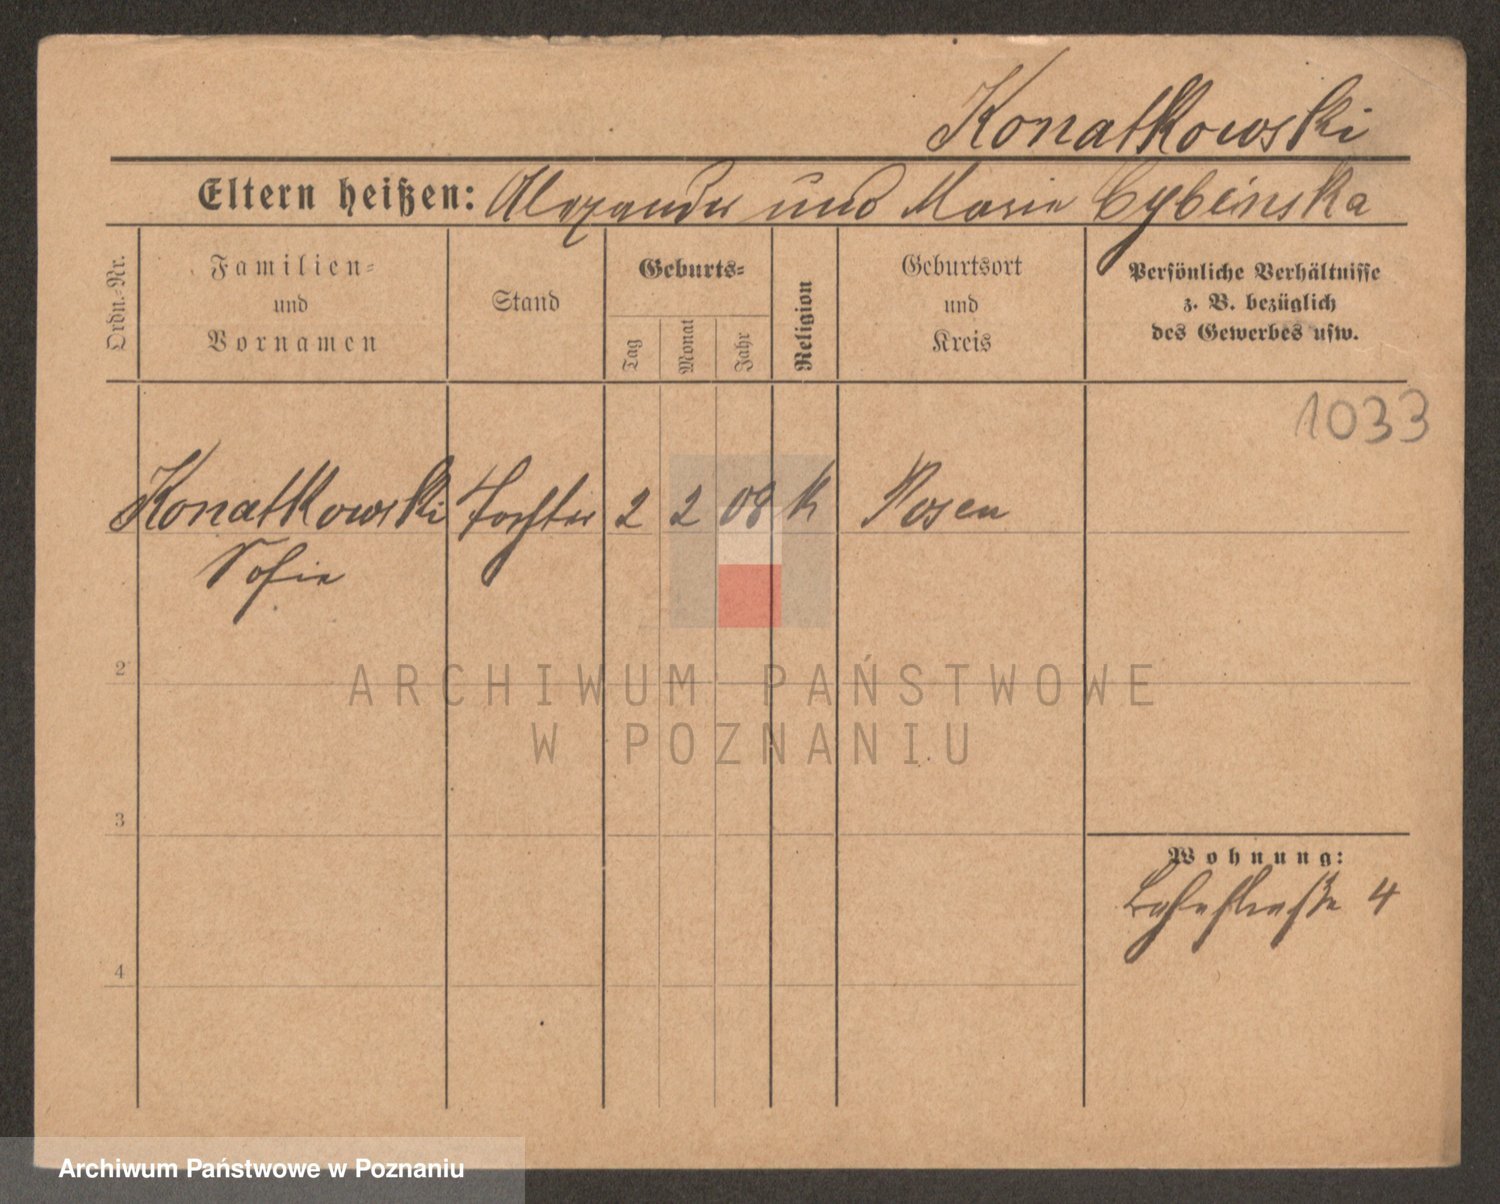 Konatkowski
Eltern heißen: Alexander und Marie Cybinska
Ordn.-Nr.
Familien-
und
Vornamen
Stand
Geburts-
Tag
Monat
Jahr
Religion
Geburtsort
und
Kreis
Persönliche Verhältnisse
z. B. bezüglich
des Gewerbes usw.
1033
Konatkowski Tochter 2 2 08 k Posen
Sofie
2
3
4
Wohnung:
4
ARCHIWUM PAŃSTWOWE
W POZNANIU
Archiwum Państwowe w Poznaniu